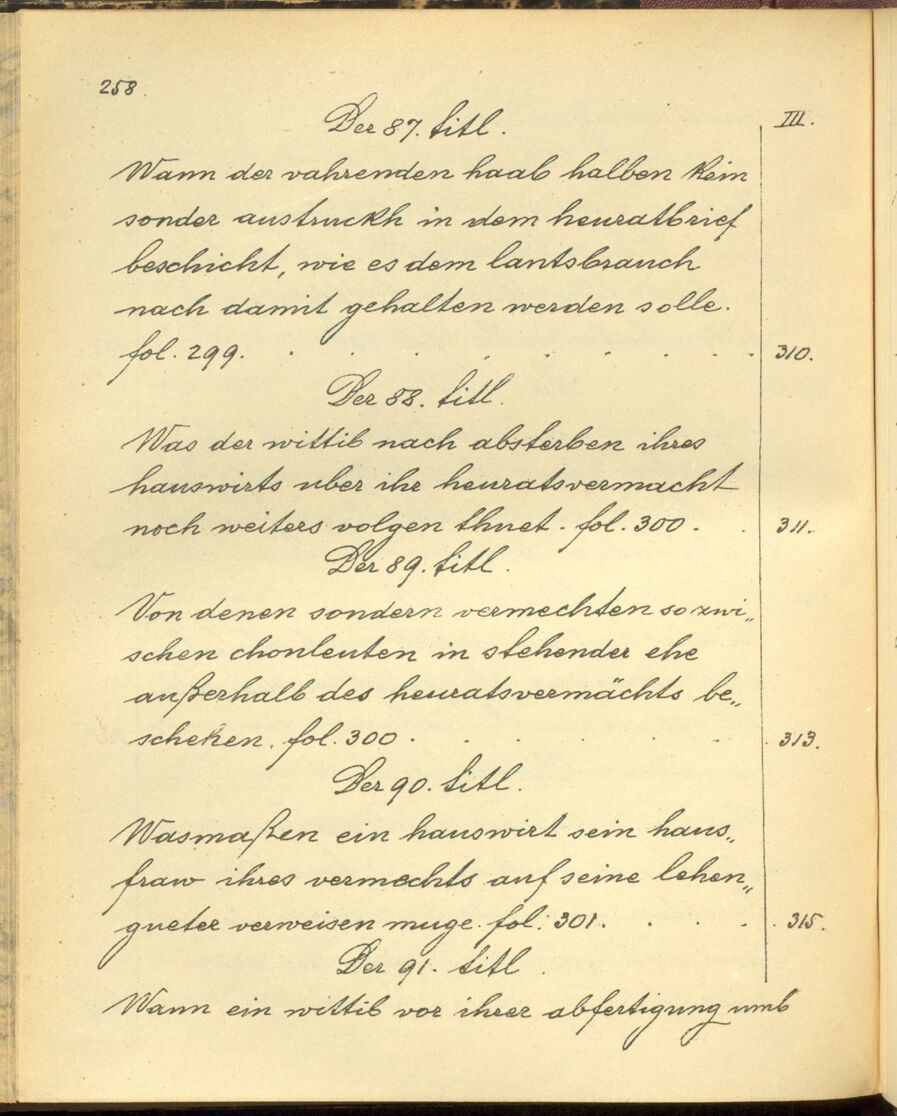 258.
III.
Der 87. titl.
Wann der vahrenden haab halben kein
sonder austruckh in dem heuratbrief
beschicht, wie es dem lantsbrauch
nach damit gehalten werden solle.
fol. 299. . . . . . . . . 310.
Der 88. titl.
Was der wittib nach absterben ihres
hauswirts uber ihr heuratsvermacht
noch weiters volgen thuet. fol. 300. . 311.
Der 89. titl.
Von denen sondern vermechten so zwi„
schen chonleuten in stehender ehe
außerhalb des heuratsvermächts be„
schehen. fol. 300. . . . . . . 313.
Der 90. titl.
Wasmaßen ein hauswirt sein haus„
fraw ihres vermechts auf seine lehen„
gueter verweisen muge. fol. 301. . . . . 315.
Der 91. titl.
Wann ein wittib vor ihrer abfertigung umb